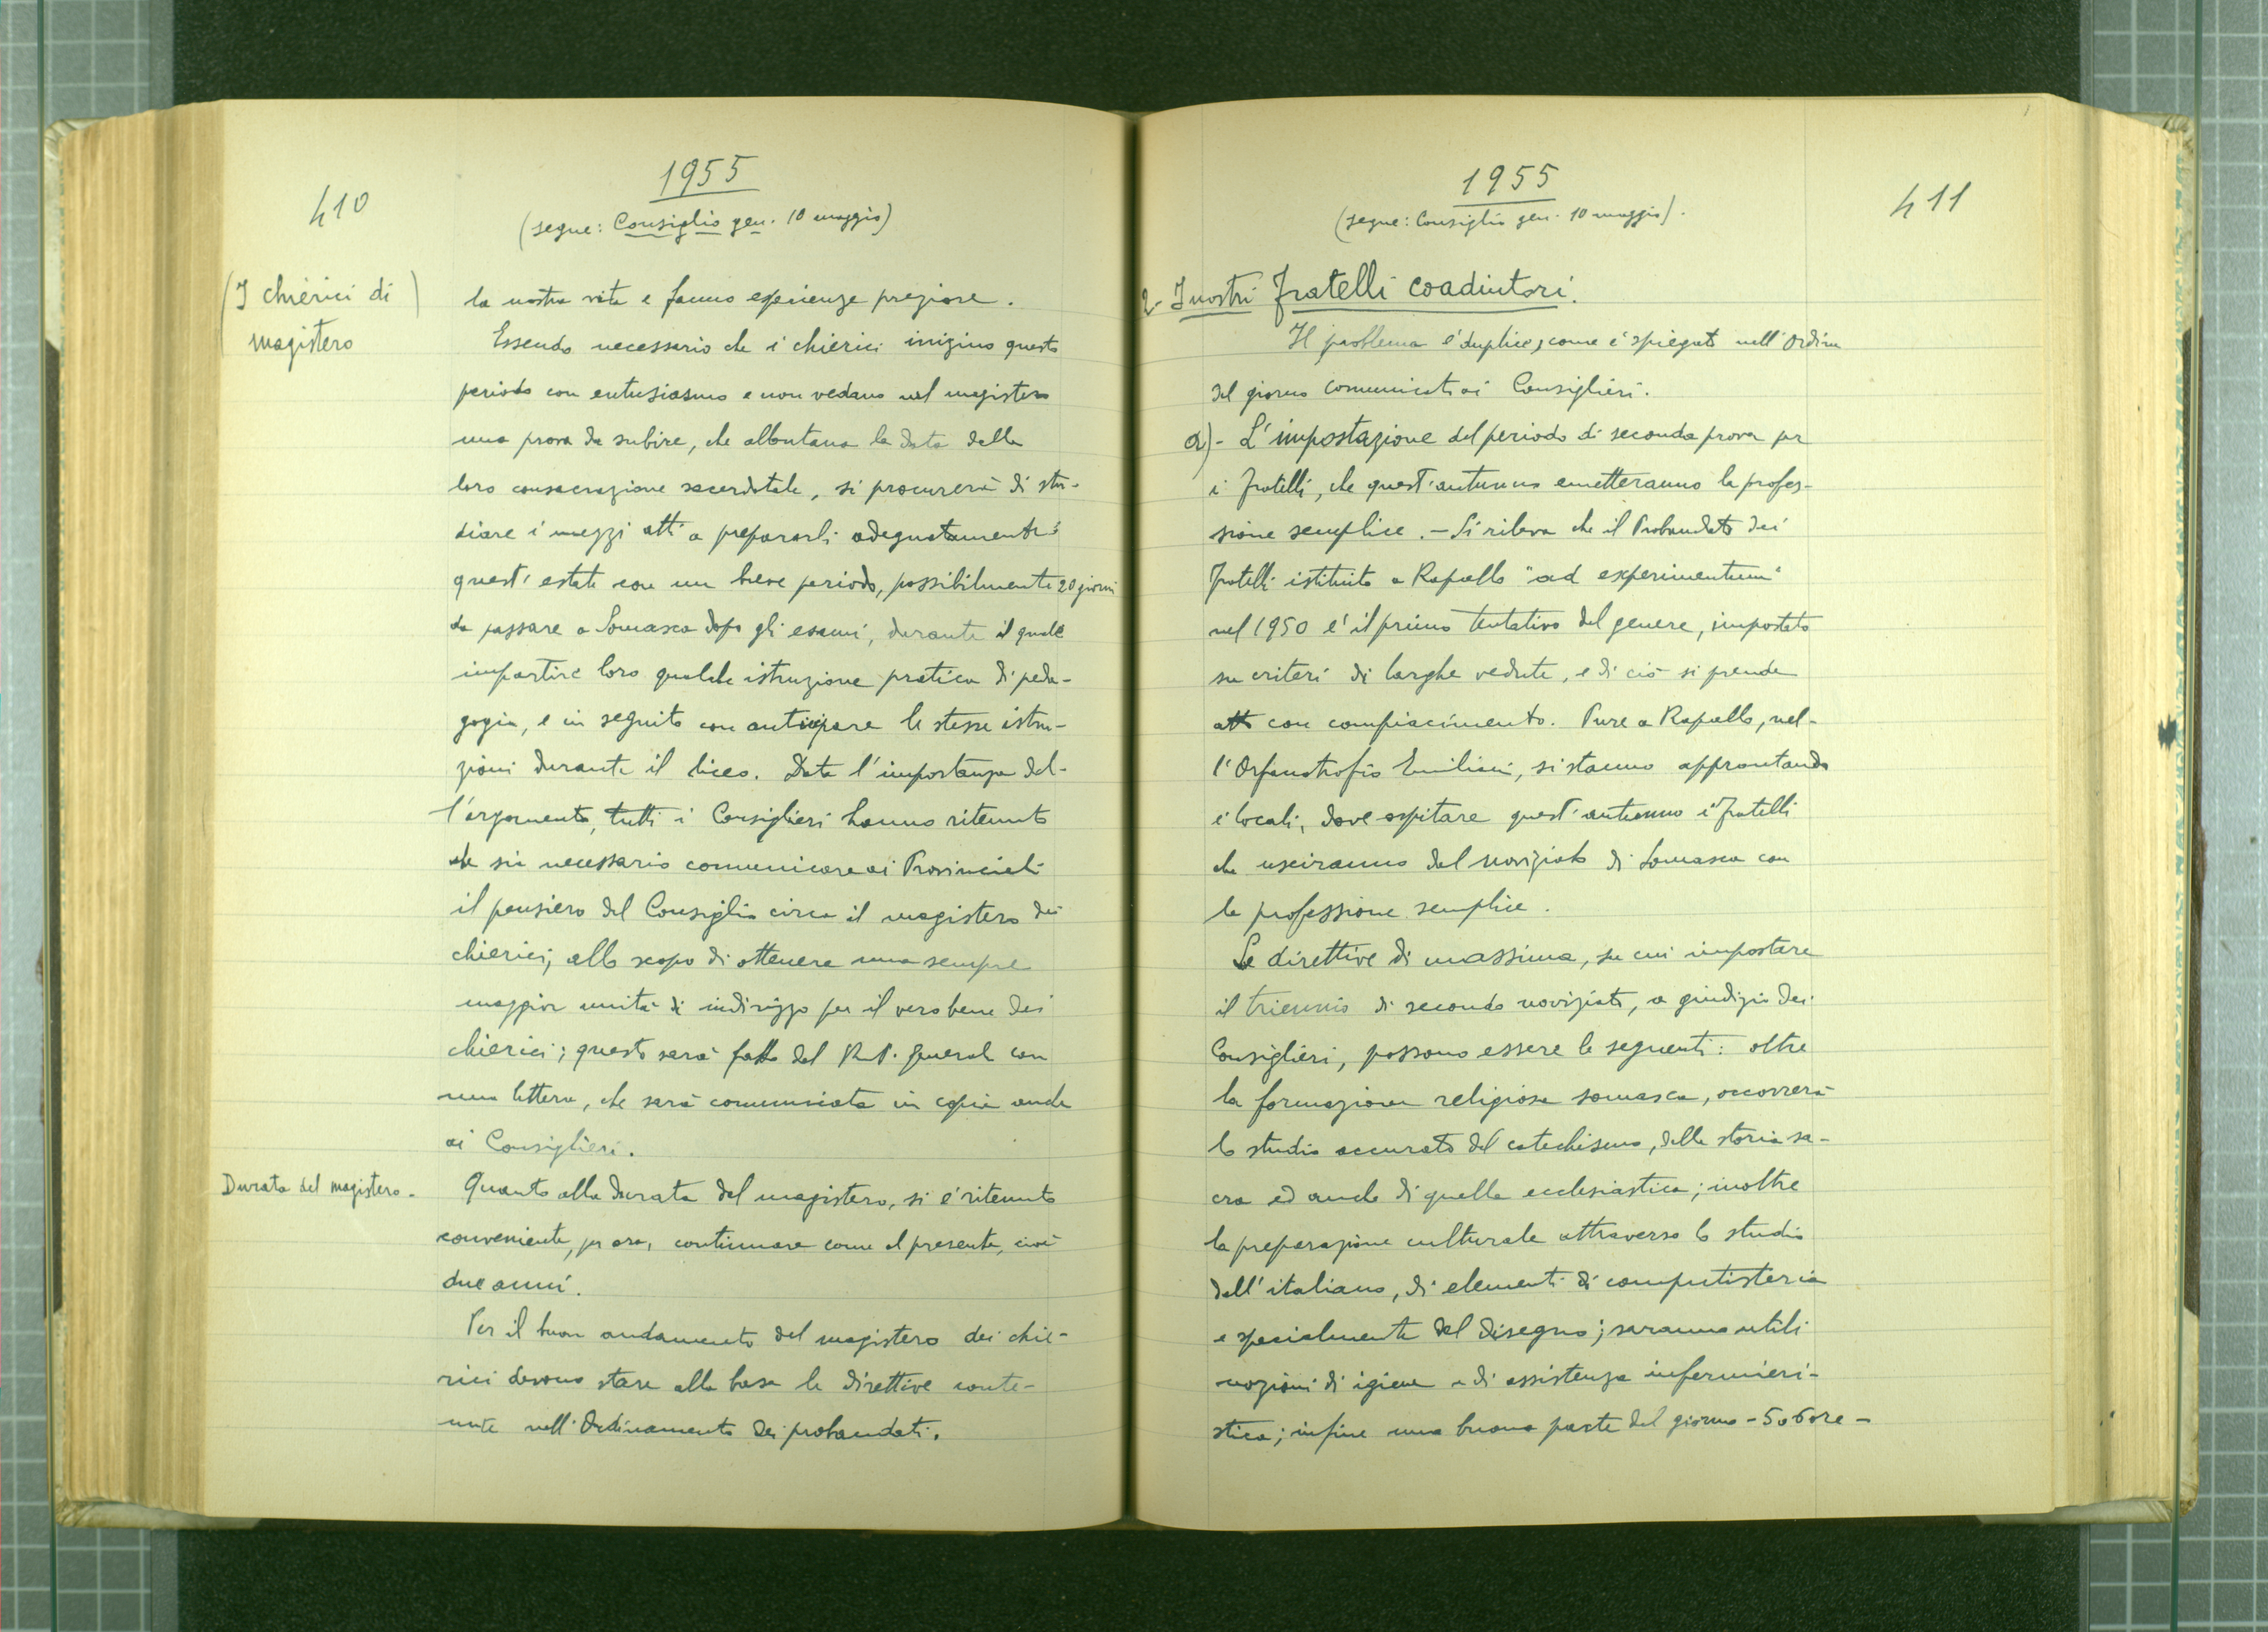 410
1955
(segue: Consiglio gen. 10 maggio)
(I chierici di)
magistero
la nostra vita e fanno esperienze preziose.
Essendo necessario che i chierici inizino questo
periodo con entusiasmo e non vedano nel magistero
una prova da subire, che allontana la data della
loro consacrazione sacerdotale, si procurerà di stu-
diare i mezzi atti a prepararli adeguatamente:
quest'estate con un breve periodo, possibilmente 20 giorni
da passare a Somasca dopo gli esami, durante il quale
impartire loro qualche istruzione pratica di peda-
gogia, e in seguito con anticipare le stesse istru-
zioni durante il liceo. Data l'importanza del-
l'argomento, tutti i Consiglieri hanno ritenuto
che sia necessario comunicare ai Provinciali
il pensiero del Consiglio circa il magistero dei
chierici, allo scopo di ottenere una sempre
maggior unità di indirizzo per il vero bene dei
chierici; questo sarà fatto dal R.P. Generale con
una lettera, che sarà comunicata in copia anche
ai Consiglieri.
Durata del magistero.
Quanto alla durata del magistero, si è ritenuto
conveniente, per ora, continuare come al presente, cioè
due anni.
Per il buon andamento del magistero dei chie-
rici devono stare alla base le direttive conte-
nute nell'Ordinamento dei probandati.
1955
(segue: Consiglio gen. 10 maggio).
411
2- I nostri Fratelli coadiutori.
Il problema è duplice, come è spiegato nell'Ordine
del giorno comunicato ai Consiglieri.
a)- L'impostazione del periodo di seconda prova per
i Fratelli, che quest'autunno emetteranno la profes-
sione semplice. - Si rileva che il Probandato dei
Fratelli istituito a Rapallo "ad experimentum"
nel 1950 è il primo tentativo del genere, impostato
su criteri di larghe vedute, e di ciò si prende
atto con compiacimento. Pure a Rapallo, nel-
l'Orfanotrofio Emiliani, si stanno approntando
i locali, dove ospitare quest'autunno i Fratelli
che usciranno dal noviziato di Somasca con
la professione semplice.
Le direttive di massima, su cui impostare
il triennio di secondo noviziato, a giudizio dei
Consiglieri, possono essere le seguenti: oltre
la formazione religiosa somasca, occorrerà
lo studio accurato del catechismo, della storia sa-
cra ed anche di quella ecclesiastica; inoltre
la preparazione culturale attraverso lo studio
dell'italiano, di elementi di computisteria
e specialmente del disegno; saranno utili
nozioni di igiene e di assistenza infermieri-
stica; infine una buona parte del giorno - 5 o 6 ore -